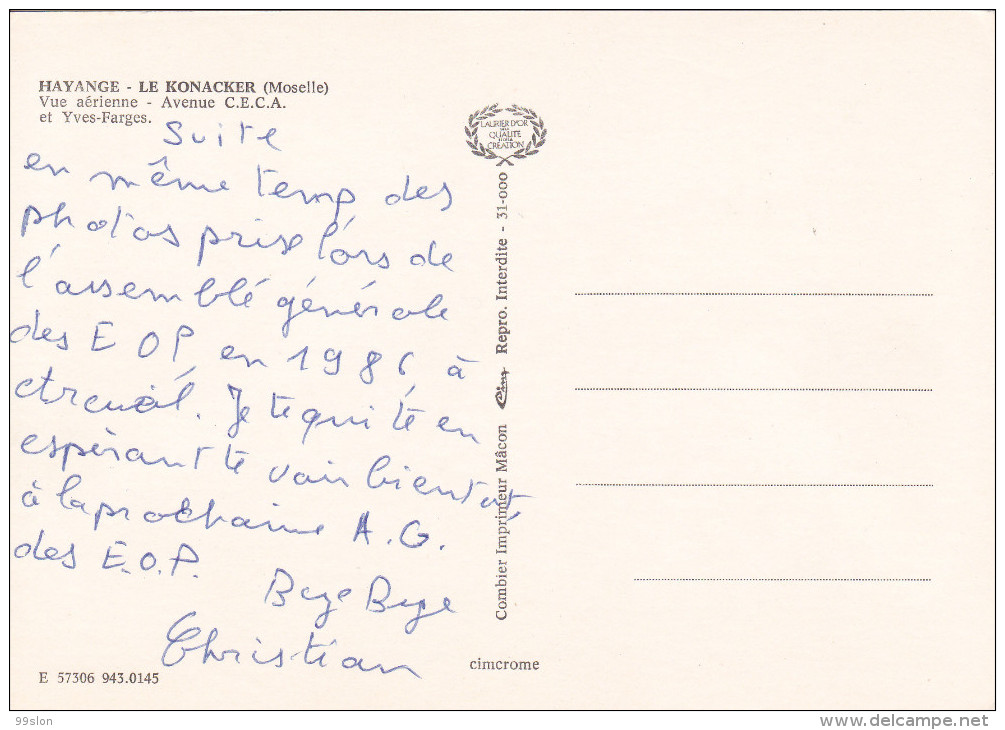 HAYANGE - LE KONACKER (Moselle)
Vue aérienne - Avenue C.E.C.A.
et Yves-Farges.
Suite
en même temp des
photos prise lors de
l'assemblé générale
des E O P en 1986 à
. Je te quitte en
espèrant te voir bientôt
à la prochaine A.G.
des E.O.P.
Beye Beye
Christian
E 57306 943.0145
LAURIER D'OR
QUALITE
CREATION
Combier Imprimeur Mâcon Cim Repro. Interdite - 31-000
cimcrome
99slon
www.delcampe.net